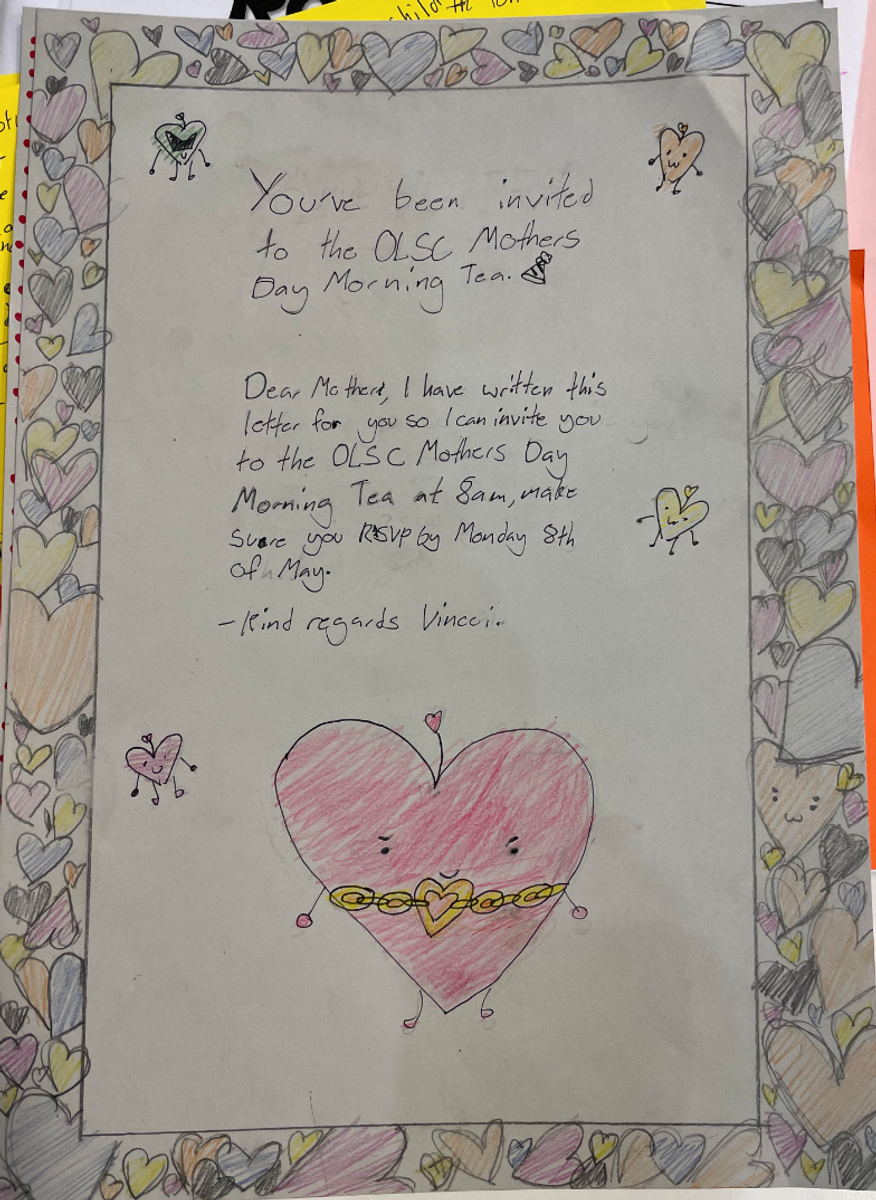 child
You've been invited
to the OLSC Mothers
Day Morning Tea.
Dear Mothers, I have written this
letter for you so I can invite you
to the OLSC Mothers Day
Morning Tea at 8am, make
suere you RSVP by Monday 8th
of May.
-Kind regards Vincci.